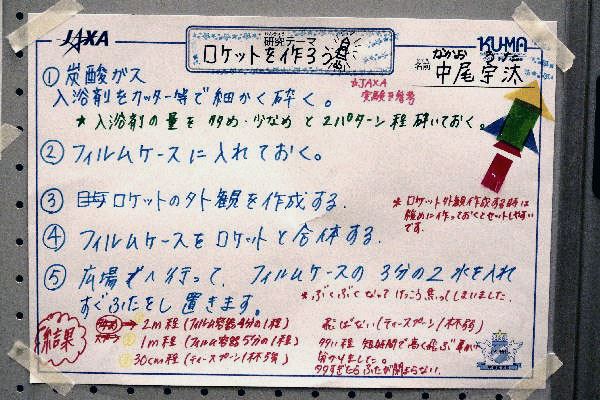 JAXA
研究テーマ
ロケットを作ろう
KU-MA
名前 中尾宇汰
① 炭酸ガス
入浴剤をカッター等で細かく砕く。
★JAXA
実験参考
★入浴剤の量を多め・少なめと2パターン程砕いておく。
② フィルムケースに入れておく。
③ ロケットの外観を作成する.
★ロケット外観作成する時は
強めに作っておくとセットしやすい
です.
④ フィルムケースをロケットと合体する.
⑤ 広場へ行って, フィルムケースの3分の2水を入れ
すぐふたをし置きます。
★ぶくぶくなってけっこう焦ってしまいました.
結果
2m程(フィルム容器4分の1程)
1m程(フィルム容器5分の1程)
30cm程(ティースプーン1杯強)
飛ばない(ティースプーン1杯弱)
多い程短時間で高く飛ぶ事が
分かりました。
多すぎたらふたが閉まらない.